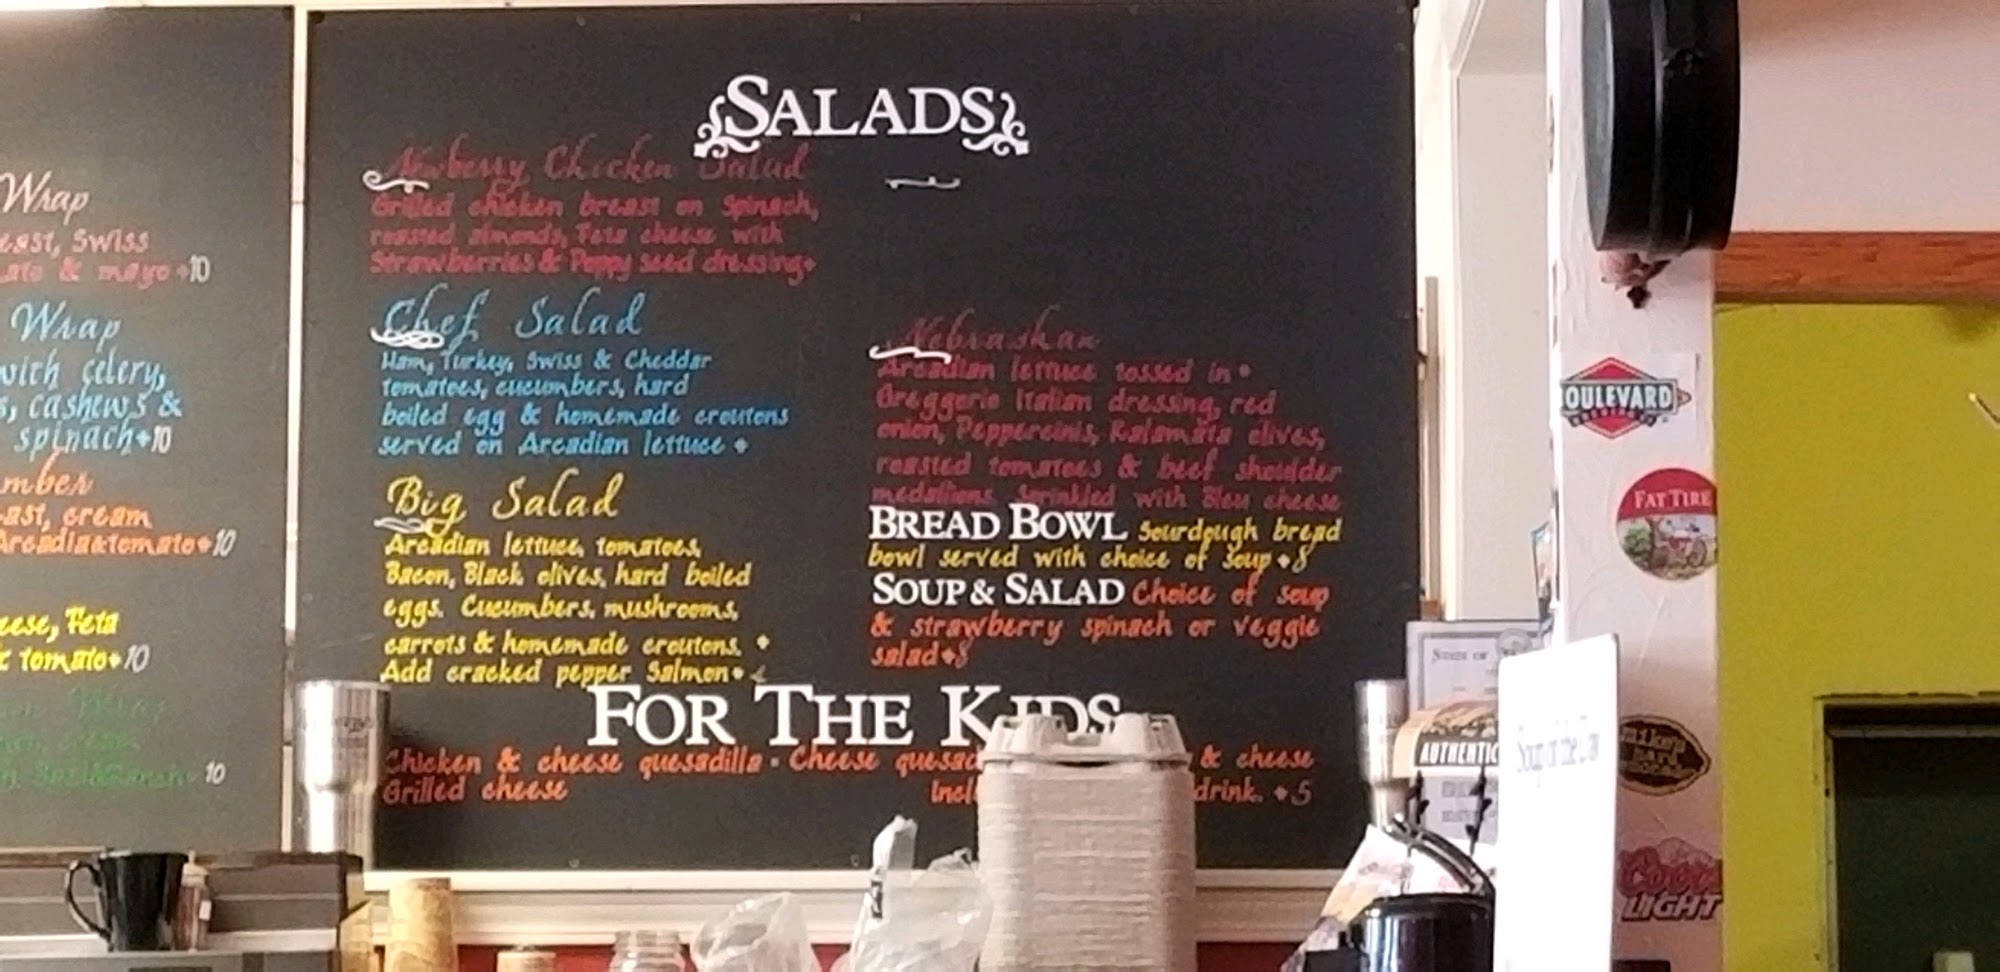 Wrap
east, Swiss
ato & mayo 10
Wrap
with celery,
s, cashews &
spinach 10
mber
ast, cream
Arcadia & tomato 10
eese, Feta
& tomato 10
10
SALADS
Newberry Chicken Salad
Grilled chicken breast on Spinach,
roasted almonds, Feta cheese with
Strawberries & Poppy seed dressing
Chef Salad
Ham, Turkey, Swiss & Cheddar
tomatoes, cucumbers, hard
boiled egg & homemade croutons
served on Arcadian lettuce
Big Salad
Arcadian lettuce, tomatoes,
Bacon, Black olives, hard boiled
eggs. Cucumbers, mushrooms,
carrots & homemade croutons.
Add cracked pepper Salmon
Nebraskan
Arcadian lettuce tossed in
Greggorio Italian dressing, red
onion, Pepperoinis, Kalamata olives,
roasted tomatoes & beef shoulder
medallions. Sprinkled with Bleu cheese
BREAD BOWL Sourdough bread
bowl served with choice of Soup 8
SOUP & SALAD Choice of soup
& strawberry spinach or veggie
salad 8
FOR THE KIDS
Chicken & cheese quesadilla • Cheese quesa & cheese
Grilled cheese Incl drink. 5
OULEVARD
FAT TIRE
STATE OF
AUTHENTIC
mike's
hard
Coors
LIGHT